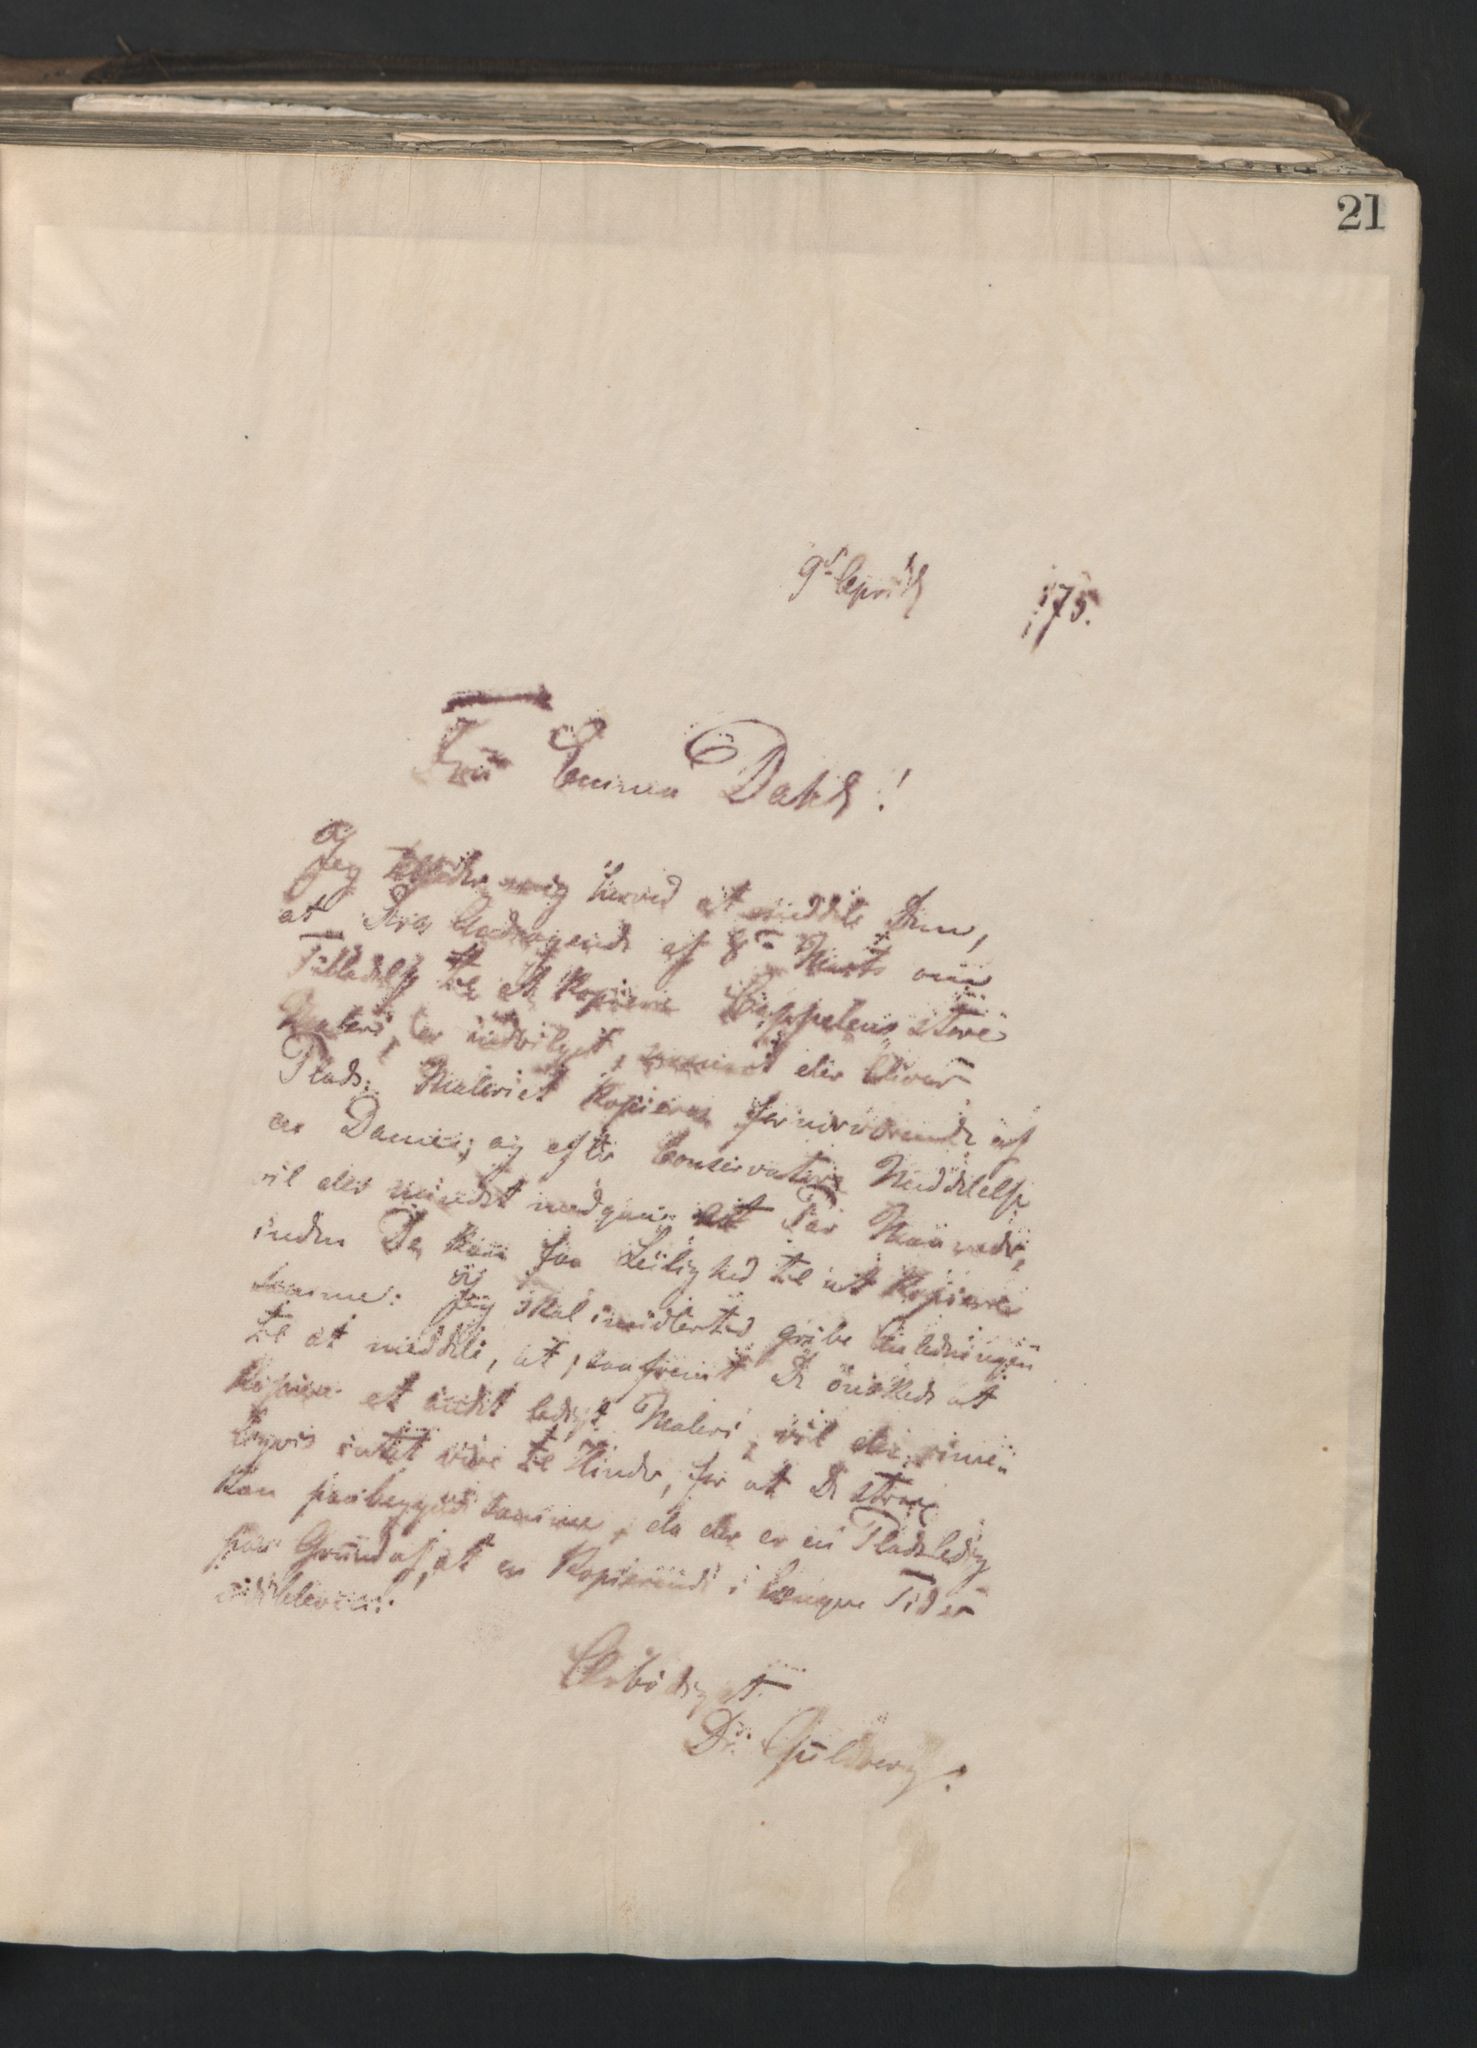 21
9d April 75.
Fru Emma Dahl!
Jeg tillader mig herved at meddele Dem,
at Deres Andragende af 8de Marts om
Tilladelse til at kopiere Cappelens store
Maleri, er indvilget, saasnart der bliver
Plads. Maleriet kopieres for nærværende af
en Dame; og efter Conservators Meddelelse
vil der mindst medgaa et Par Maaneder,
inden De kan faa Leilighed til at kopiere
samme. Jeg skal imidlertid gribe Anledningen
til at meddele, at, saafremt De ønskede at
kopiere et andet ledigt Maleri, vil der rime-
ligvis intet være til Hinder, for at De strax
kan paabegynde samme, da der er en Plads ledig
paa Grund af, at en Kopierende i længere Tid er
udebleven.
Ærbødigst
Dr. Guldberg.